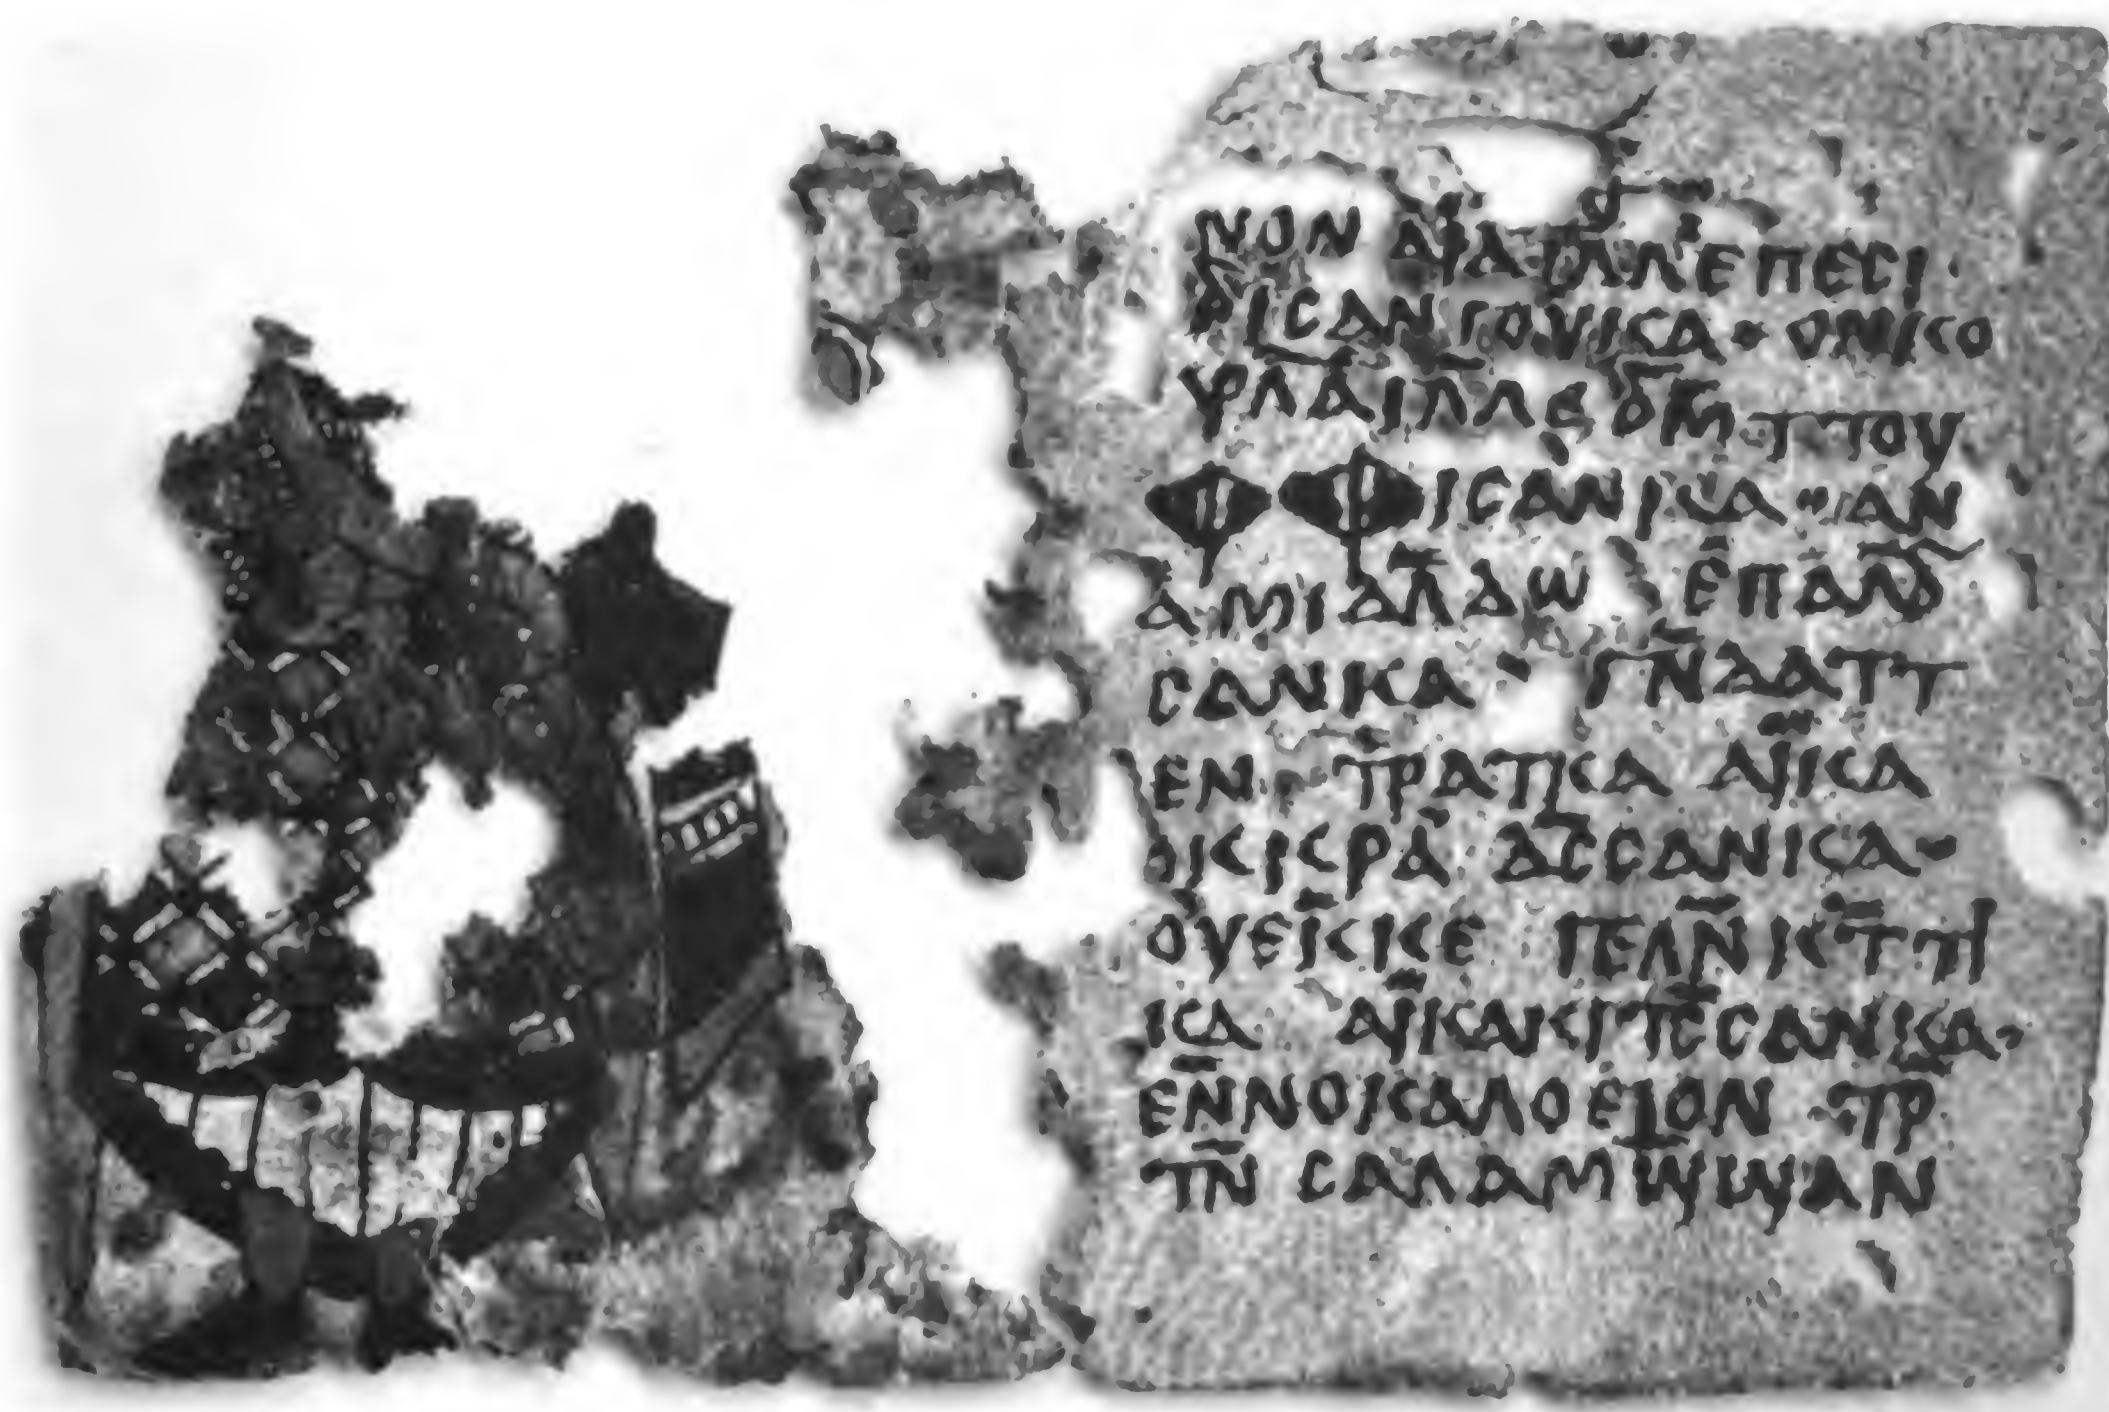 ⲛⲟⲛ ⲁⳟⲁ ⲗ̄ⲗⲉⲡⲉⲥⲓ·
ⲣⲓⲥⲁⲛⲅⲟⲩⲕⲁ· ⲟⲛⲕⲟ
ⲫⲫⲓⲥⲁⲛⲕⲁ· ⲁⲛ
ⲁⲙⲓⲁⲗ̄ⲇⲱ ⲉ̄ⲡⲁⲗⳝ
ⲥⲁⲛⲕⲁ· ⲅⲛ̄ⲇⲁⲧⲧ
ⲉⲛ ⲧⲣ̄ⲁⲧⲕⲁ ⲁⳟ̄ⲕⲁ
ⳟⲕⲕⲣⲁ ⲁ̄ⲥⲥⲁⲛⲕⲁ·
ⲟⲩⲉⲕ̄ⲕⲉ ⲡⲉⲗⲛ̄ⲕ̄ⲧⲧⲓ
ⲕⲁ ⲁⳟ̄ⲕⲁⲕⲓⲧ̄ⲥⲥⲁⲛⲕⲁ·
ⲉⲛ̄ⲛⲟⲕⲁⲗⲟ ⲉⲓⲟⲛ ⲧⲣ̄
ⲧⲛ̄ ⲥⲁⲗⲁⲙϣ̄ϣⲁⲛ